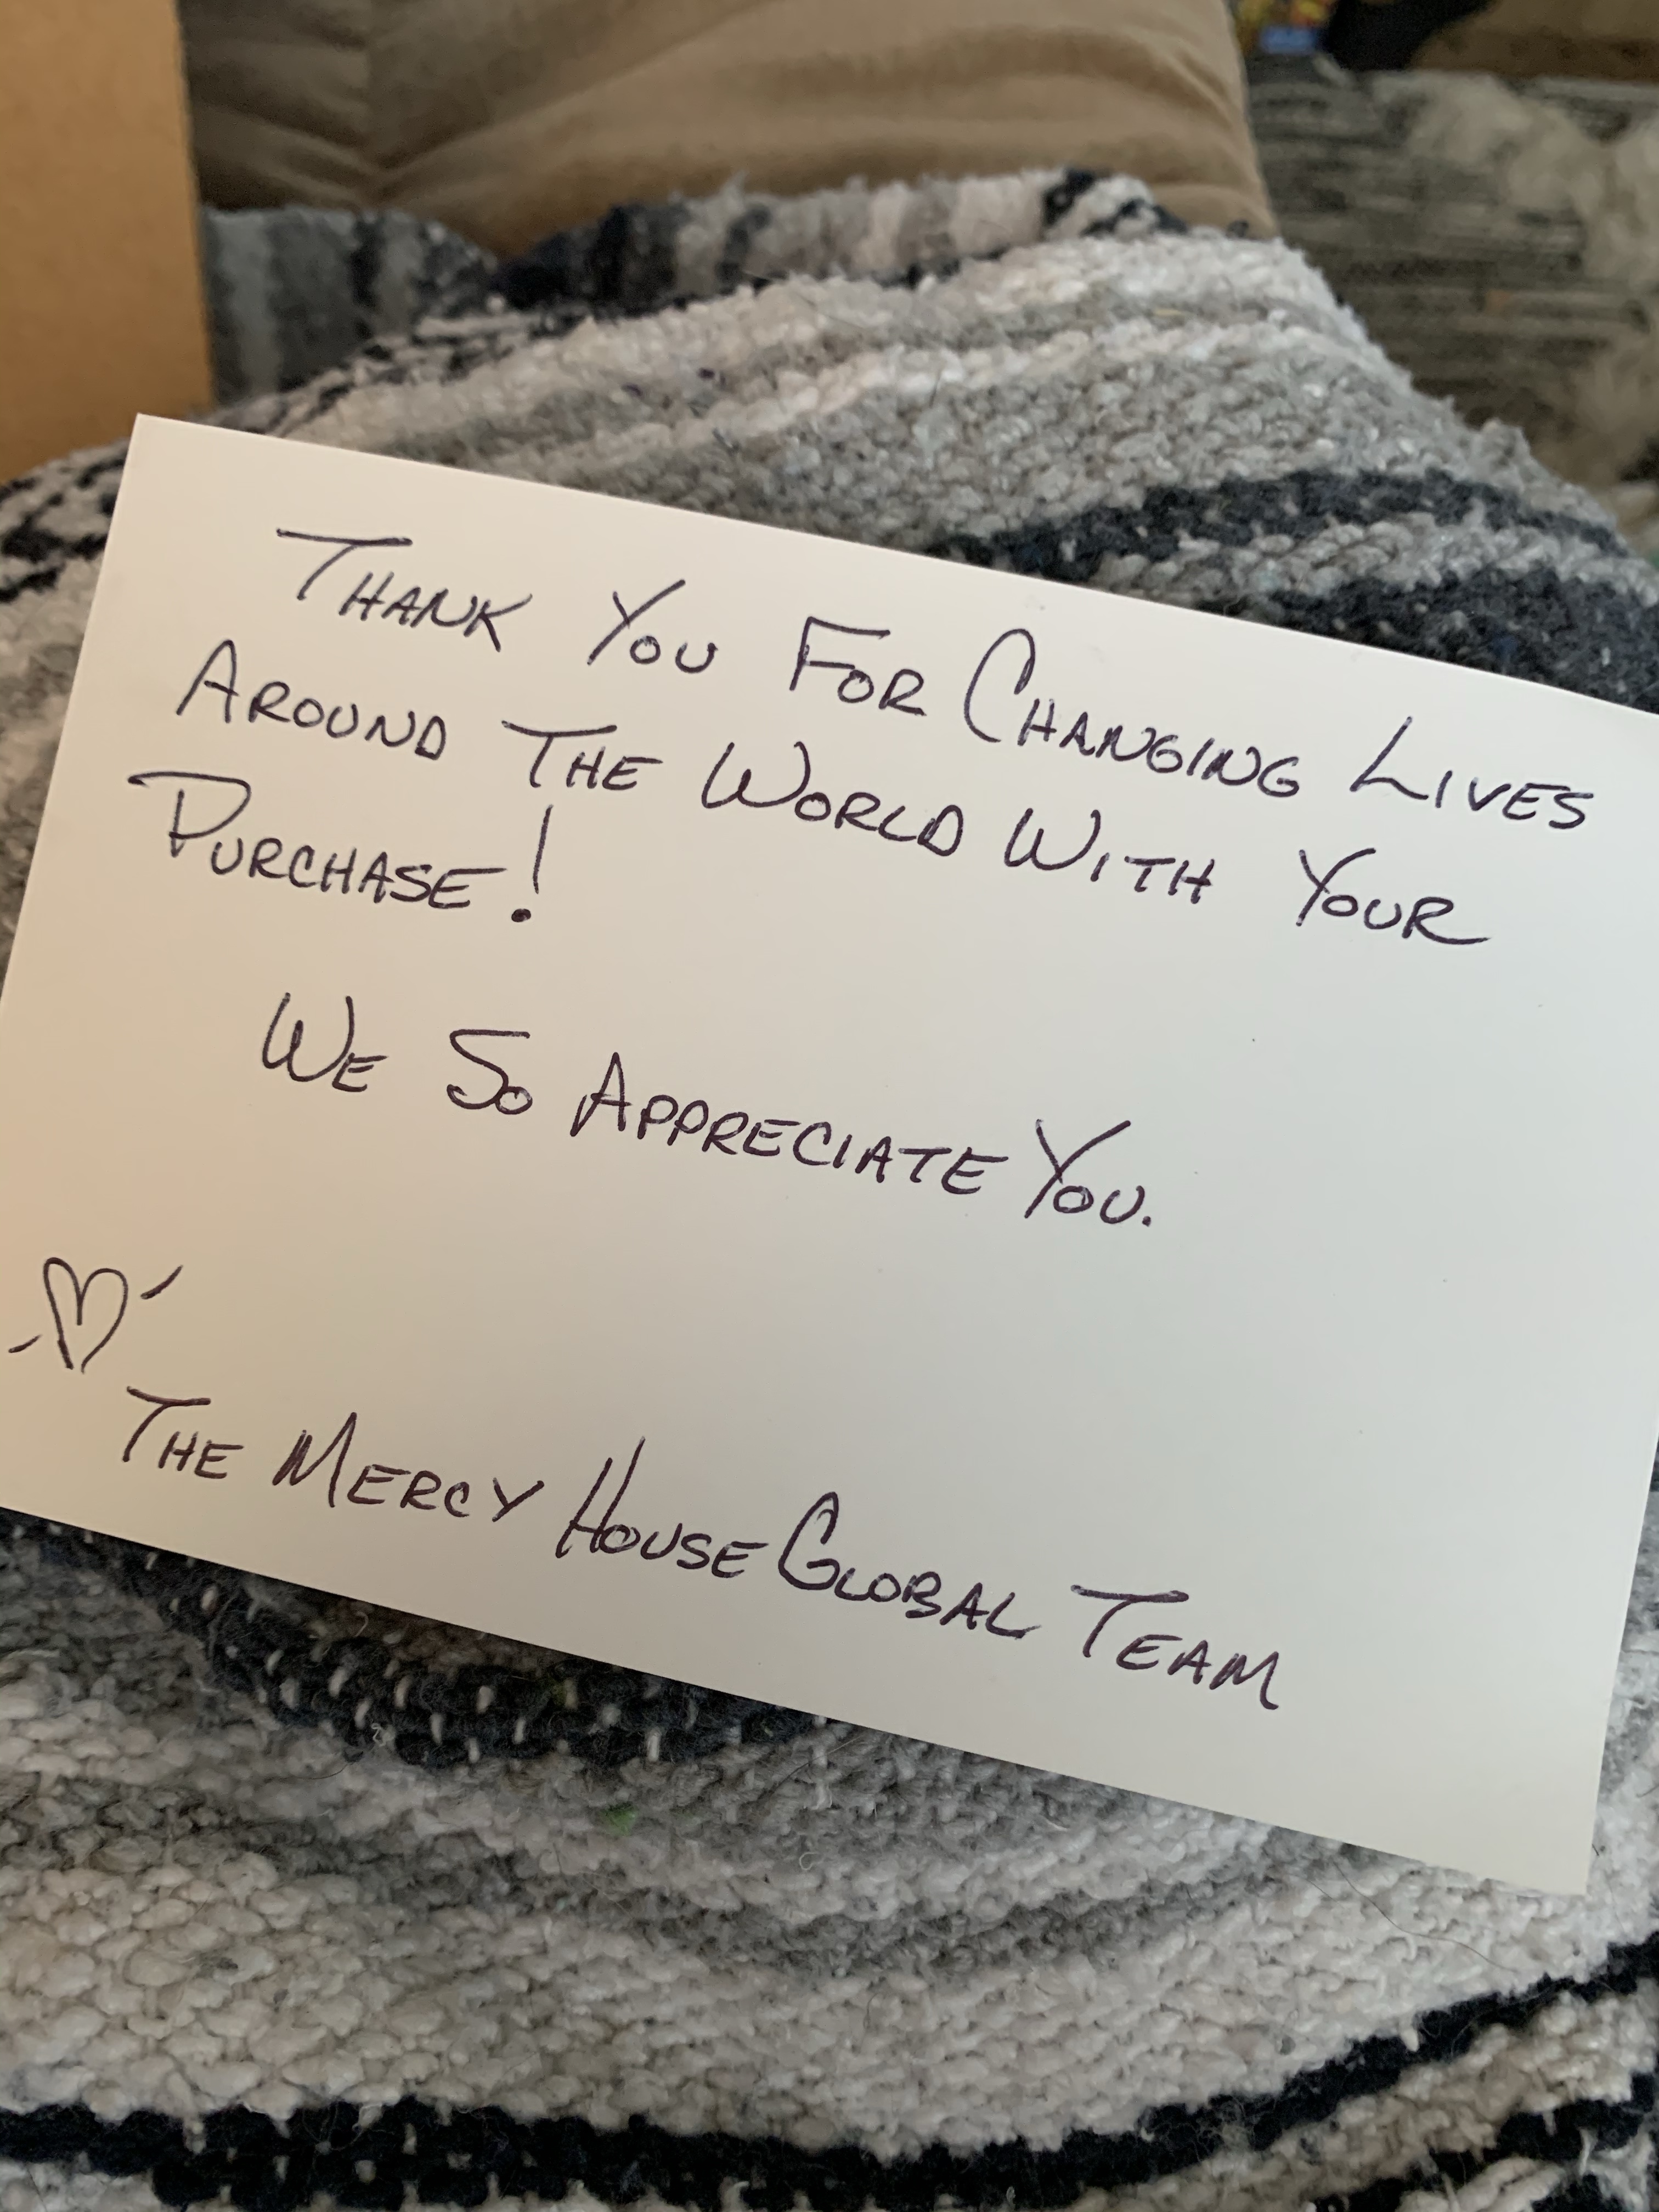 Thank You For Changing Lives
Around The World With Your
Purchase!
We So Appreciate You.
The Mercy House Global Team